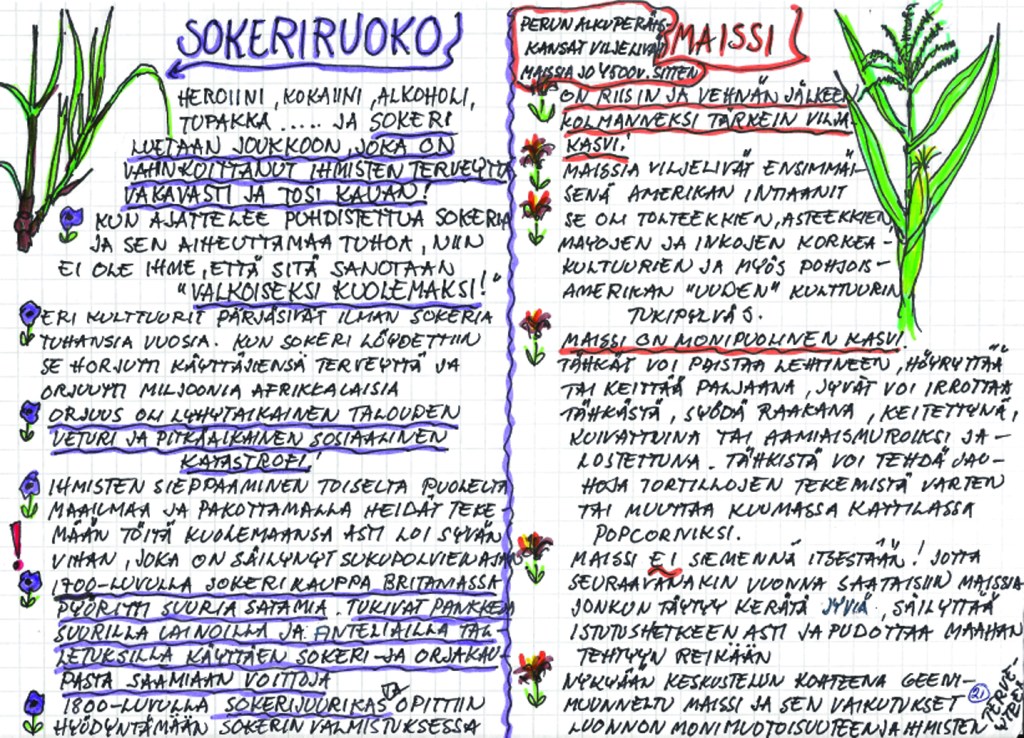 SOKERIRUOKO
HEROIINI, KOKAIINI, ALKOHOLI,
TUPAKKA ..... JA SOKERI
LUETAAN JOUKKOON, JOKA ON
VAHINKOITTANUT IHMISTEN TERVEYTTÄ
VAKAVASTI JA TOSI KAUAN!
KUN AJATTELEE PUHDISTETTUA SOKERIA
JA SEN AIHEUTTAMAA TUHOA, NIIN
EI OLE IHME, ETTÄ SITÄ SANOTAAN
"VALKOISEKSI KUOLEMAKSI!"
ERI KULTTUURIT PÄRJÄSIVÄT ILMAN SOKERIA
TUHANSIA VUOSIA. KUN SOKERI LÖYDETTIIN
SE HORJUTTI KÄYTTÄJIENSÄ TERVEYTTÄ JA
ORJUUTTI MILJOONIA AFRIKKALAISIA
ORJUUS OLI LYHYTAIKAINEN TALOUDEN
VETURI JA PITKÄAIKAINEN SOSIAALINEN
KATASTROFI!
IHMISTEN SIEPPAAMINEN TOISELTA PUOLELTA
MAAILMAA JA PAKOTTAMALLA HEIDÄT TEKE-
MÄÄN TÖITÄ KUOLEMAANSA ASTI LOI SYVÄN
! VIHAN, JOKA ON SÄILYNYT SUKUPOLVIEN AJAN
1700-LUVULLA SOKERIKAUPPA BRITANIASSA
PYÖRITTI SUURIA SATAMIA. TUKIVAT PANKKEJA
SUURILLA LAINOILLA JA ANTELIAILLA TAL-
LETUKSILLA KÄYTTÄEN SOKERI- JA ORJAKAU-
PASTA SAAMIAAN VOITTOJA
1800-LUVULLA SOKERIJUURIKASTA OPITTIIN
HYÖDYNTÄMÄÄN SOKERIN VALMISTUKSESSA
PERUN ALKUPERÄIS-
KANSAT VILJELIVÄT
MAISSIA JO 4500V. SITTEN
MAISSI
ON RIISIN JA VEHNÄN JÄLKEEN
KOLMANNEKSI TÄRKEIN VILJA
KASVI!
MAISSIA VILJELIVÄT ENSIMMÄI-
SENÄ AMERIKAN INTIAANIT
SE OLI TOLTEEKKIEN, ASTEEKKIEN
MAYOJEN JA INKOJEN KORKEA-
KULTUURIEN JA MYÖS POHJOIS-
AMERIKAN "UUDEN" KULTTUURIN
TUKIPYLVÄS.
MAISSI ON MONIPUOLINEN KASVI.
TÄHKÄT VOI PAISTAA LEHTINEEN, HÖYRYTTÄÄ
TAI KEITTÄÄ PALJAANA, JYVÄT VOI IRROTTAA
TÄHKÄSTÄ, SYÖDÄ RAAKANA, KEITETTYNÄ,
KUIVATTUINA TAI AAMIAISMUROIKSI JA-
LOSTETTUNA. TÄHKISTÄ VOI TEHDÄ JAU-
HOJA TORTILLOJEN TEKEMISTÄ VARTEN
TAI MUUTTAA KUUMASSA KATTILASSA
POPCORNIKSI.
MAISSI EI SIEMENNÄ ITSESTÄÄN! JOTTA
SEURAAVANAKIN VUONNA SAATAISIIN MAISSIA
JONKUN TÄYTYY KERÄTÄ JYVIÄ, SÄILYTTÄÄ
ISTUTUSHETKEEN ASTI JA PUDOTTAA MAAHAN
TEHTYYN REIKÄÄN
NYKYÄÄN KESKUSTELUN KOHTEENA GEENI-
MUUNNELTU MAISSI JA SEN VAIKUTUKSET
LUONNON MONIMUOTOISUUTEEN JA IHMISTEN
TERVEY-
TEEN
21